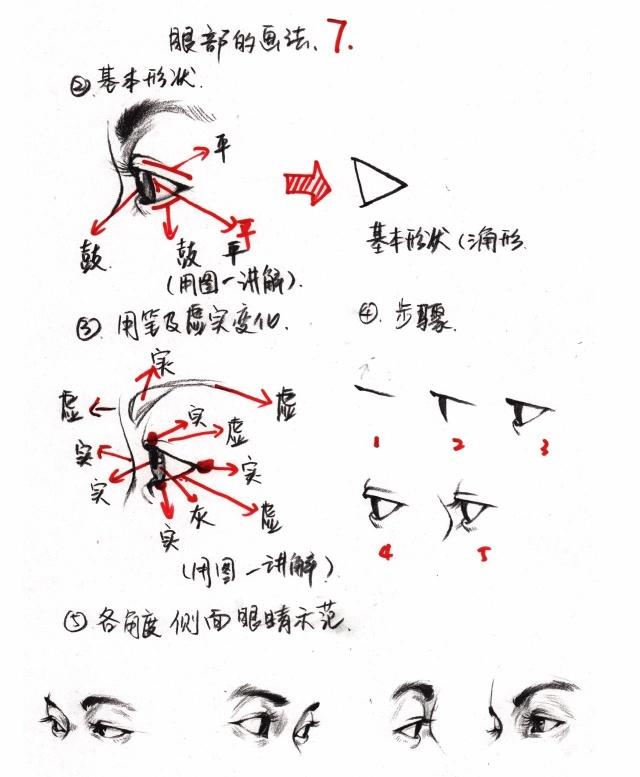 眼部的画法、7.
②.基本形状.
平
鼓.
鼓
平
平
(用图一讲解).
基本形状(三角形
③.用笔及虚实变化.
④.步骤.
实
虚
虚
实
虚
实
实
实
灰
虚
实
(用图一讲解)
1
2
3
4
5
⑤各角度侧面眼睛示范.